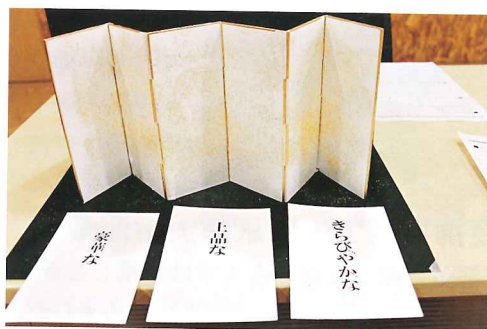 豪華な
上品な
きらびやかな